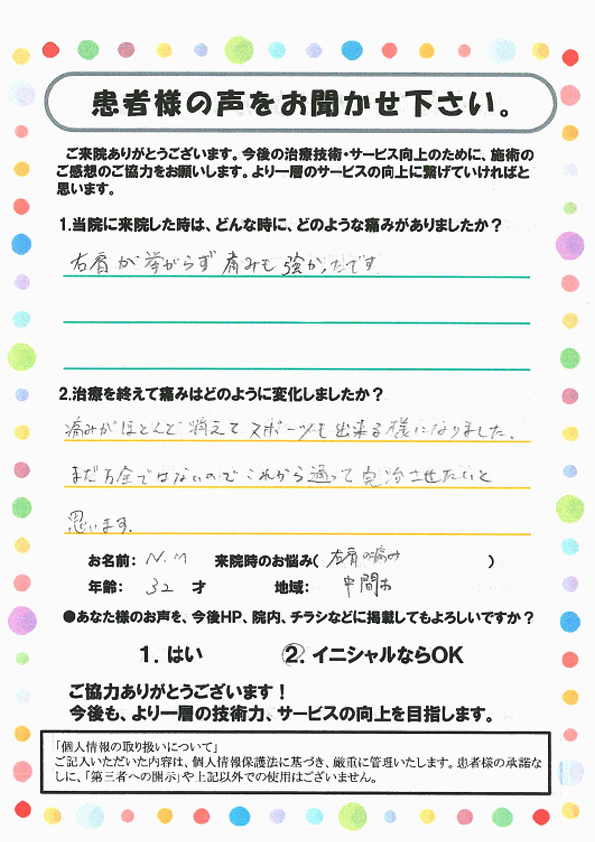 患者様の声をお聞かせ下さい。
ご来院ありがとうございます。今後の治療技術・サービス向上のために、施術の
ご感想のご協力をお願いします。より一層のサービスの向上に繋げていければと
思います。
1.当院に来院した時は、どんな時に、どのような痛みがありましたか？
右肩が挙がらず痛みも強かったです
2.治療を終えて痛みはどのように変化しましたか？
痛みがほとんど消えてスポーツも出来る様になりました。
まだ万全ではないのでこれから通って完治させたいと
思います。
お名前： N.M 来院時のお悩み( 右肩の痛み )
年齢： 32 才 地域： 中間市
●あなた様のお声を、今後HP、院内、チラシなどに掲載してもよろしいですか？
1. はい 2. イニシャルならOK
ご協力ありがとうございます！
今後も、より一層の技術力、サービスの向上を目指します。
「個人情報の取り扱いについて」
ご記入いただいた内容は、個人情報保護法に基づき、厳重に管理いたします。患者様の承諾な
しに、「第三者への開示」や上記以外での使用はございません。